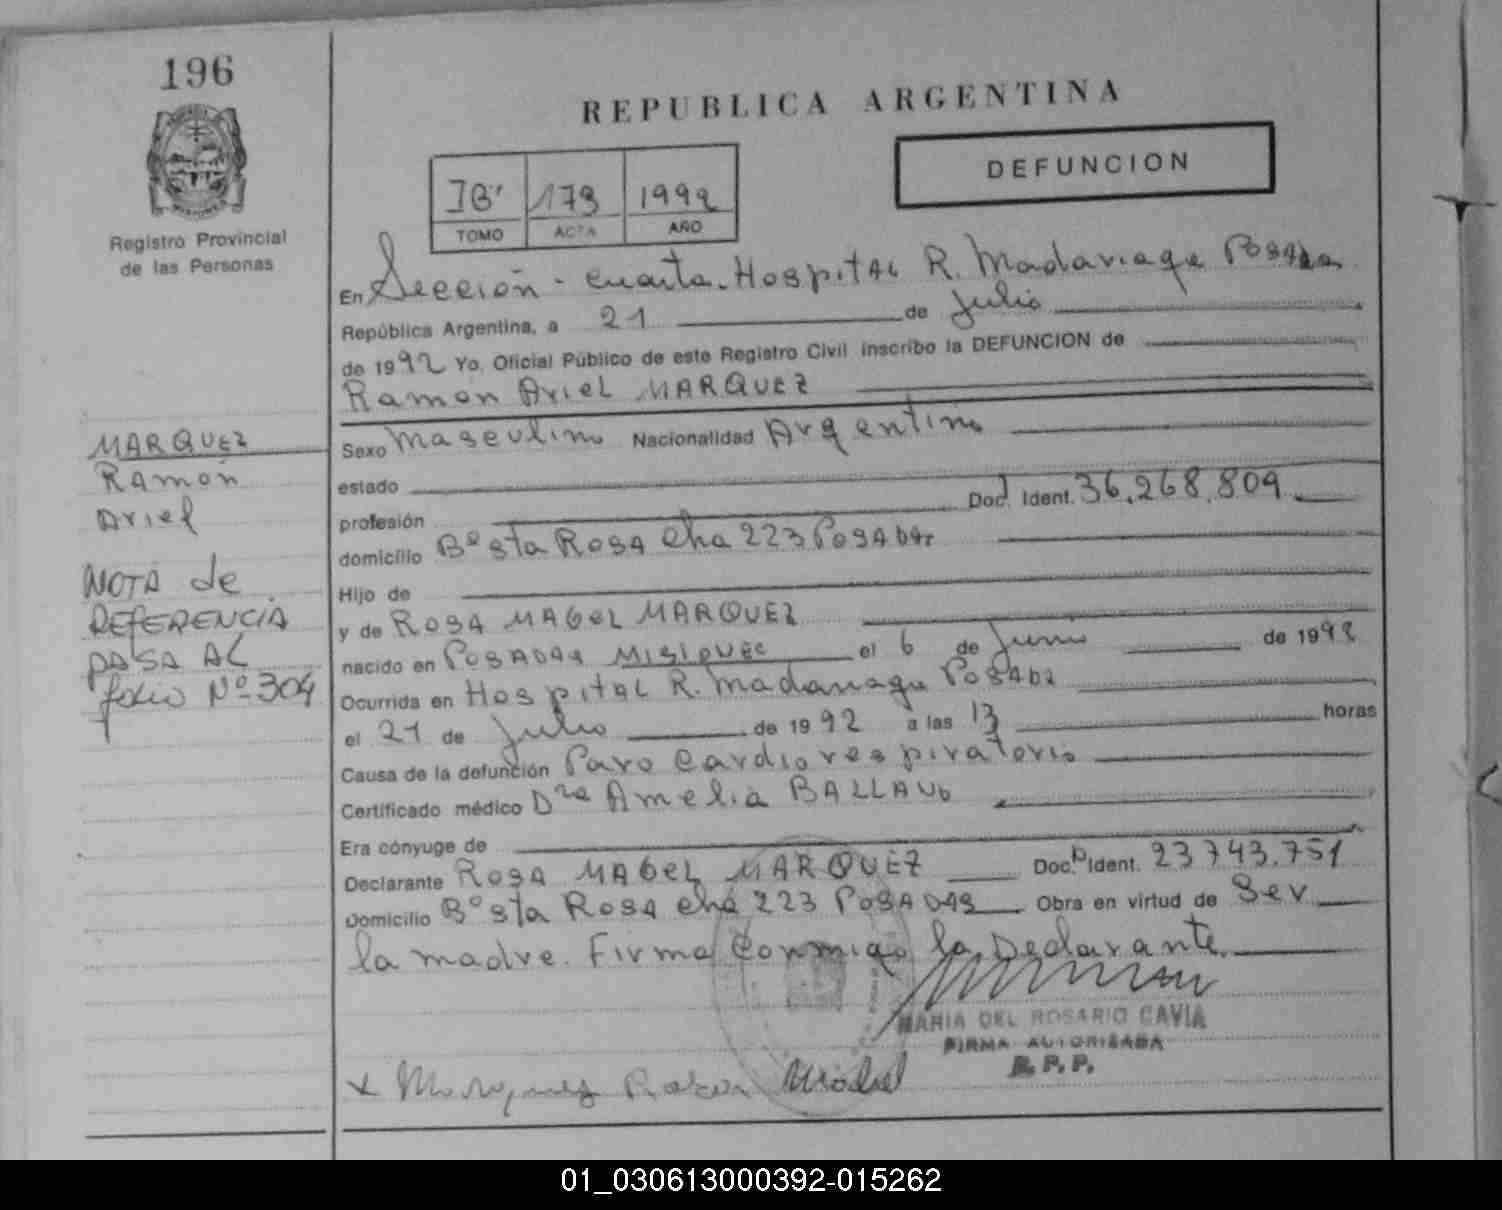 196
Registro Provincial
de las Personas
REPUBLICA ARGENTINA
DEFUNCION
173 1992
TOMO ACTA AÑO
En Sección - cuarta - Hospital R. Madariaga Posadas
República Argentina, a 21 de Julio
de 1992 Yo, Oficial Público de este Registro Civil inscribo la DEFUNCION de
Ramón Ariel MARQUEZ
Sexo Masculino Nacionalidad Argentino
estado
profesión Doc. Ident. 36.268.809
domicilio Bº Sta Rosa cha 223 POSADAS
Hijo de
y de ROSA MABEL MARQUEZ
nacido en POSADAS MISIONES el 6 de Junio de 1992
Ocurrida en Hospital R. Madariaga Posadas
el 21 de Julio de 1992 a las 13 horas
Causa de la defunción Paro Cardiorespiratorio
Certificado médico Dra Amelia
Era cónyuge de
Declarante ROSA MABEL MARQUEZ Doc. Ident. 23.743.751
Domicilio Bº Sta Rosa cha 223 POSADAS Obra en virtud de Ser
la madre. Firma Conmigo la Declarante.
MARIA DEL ROSARIO CAVIA
FIRMA AUTORIZADA
R.P.P.
x Marquez Rosa Mabel
MARQUEZ
Ramón
Ariel
NOTA de
REFERENCIA
PASA AL
folio Nº 304
01_030613000392-015262